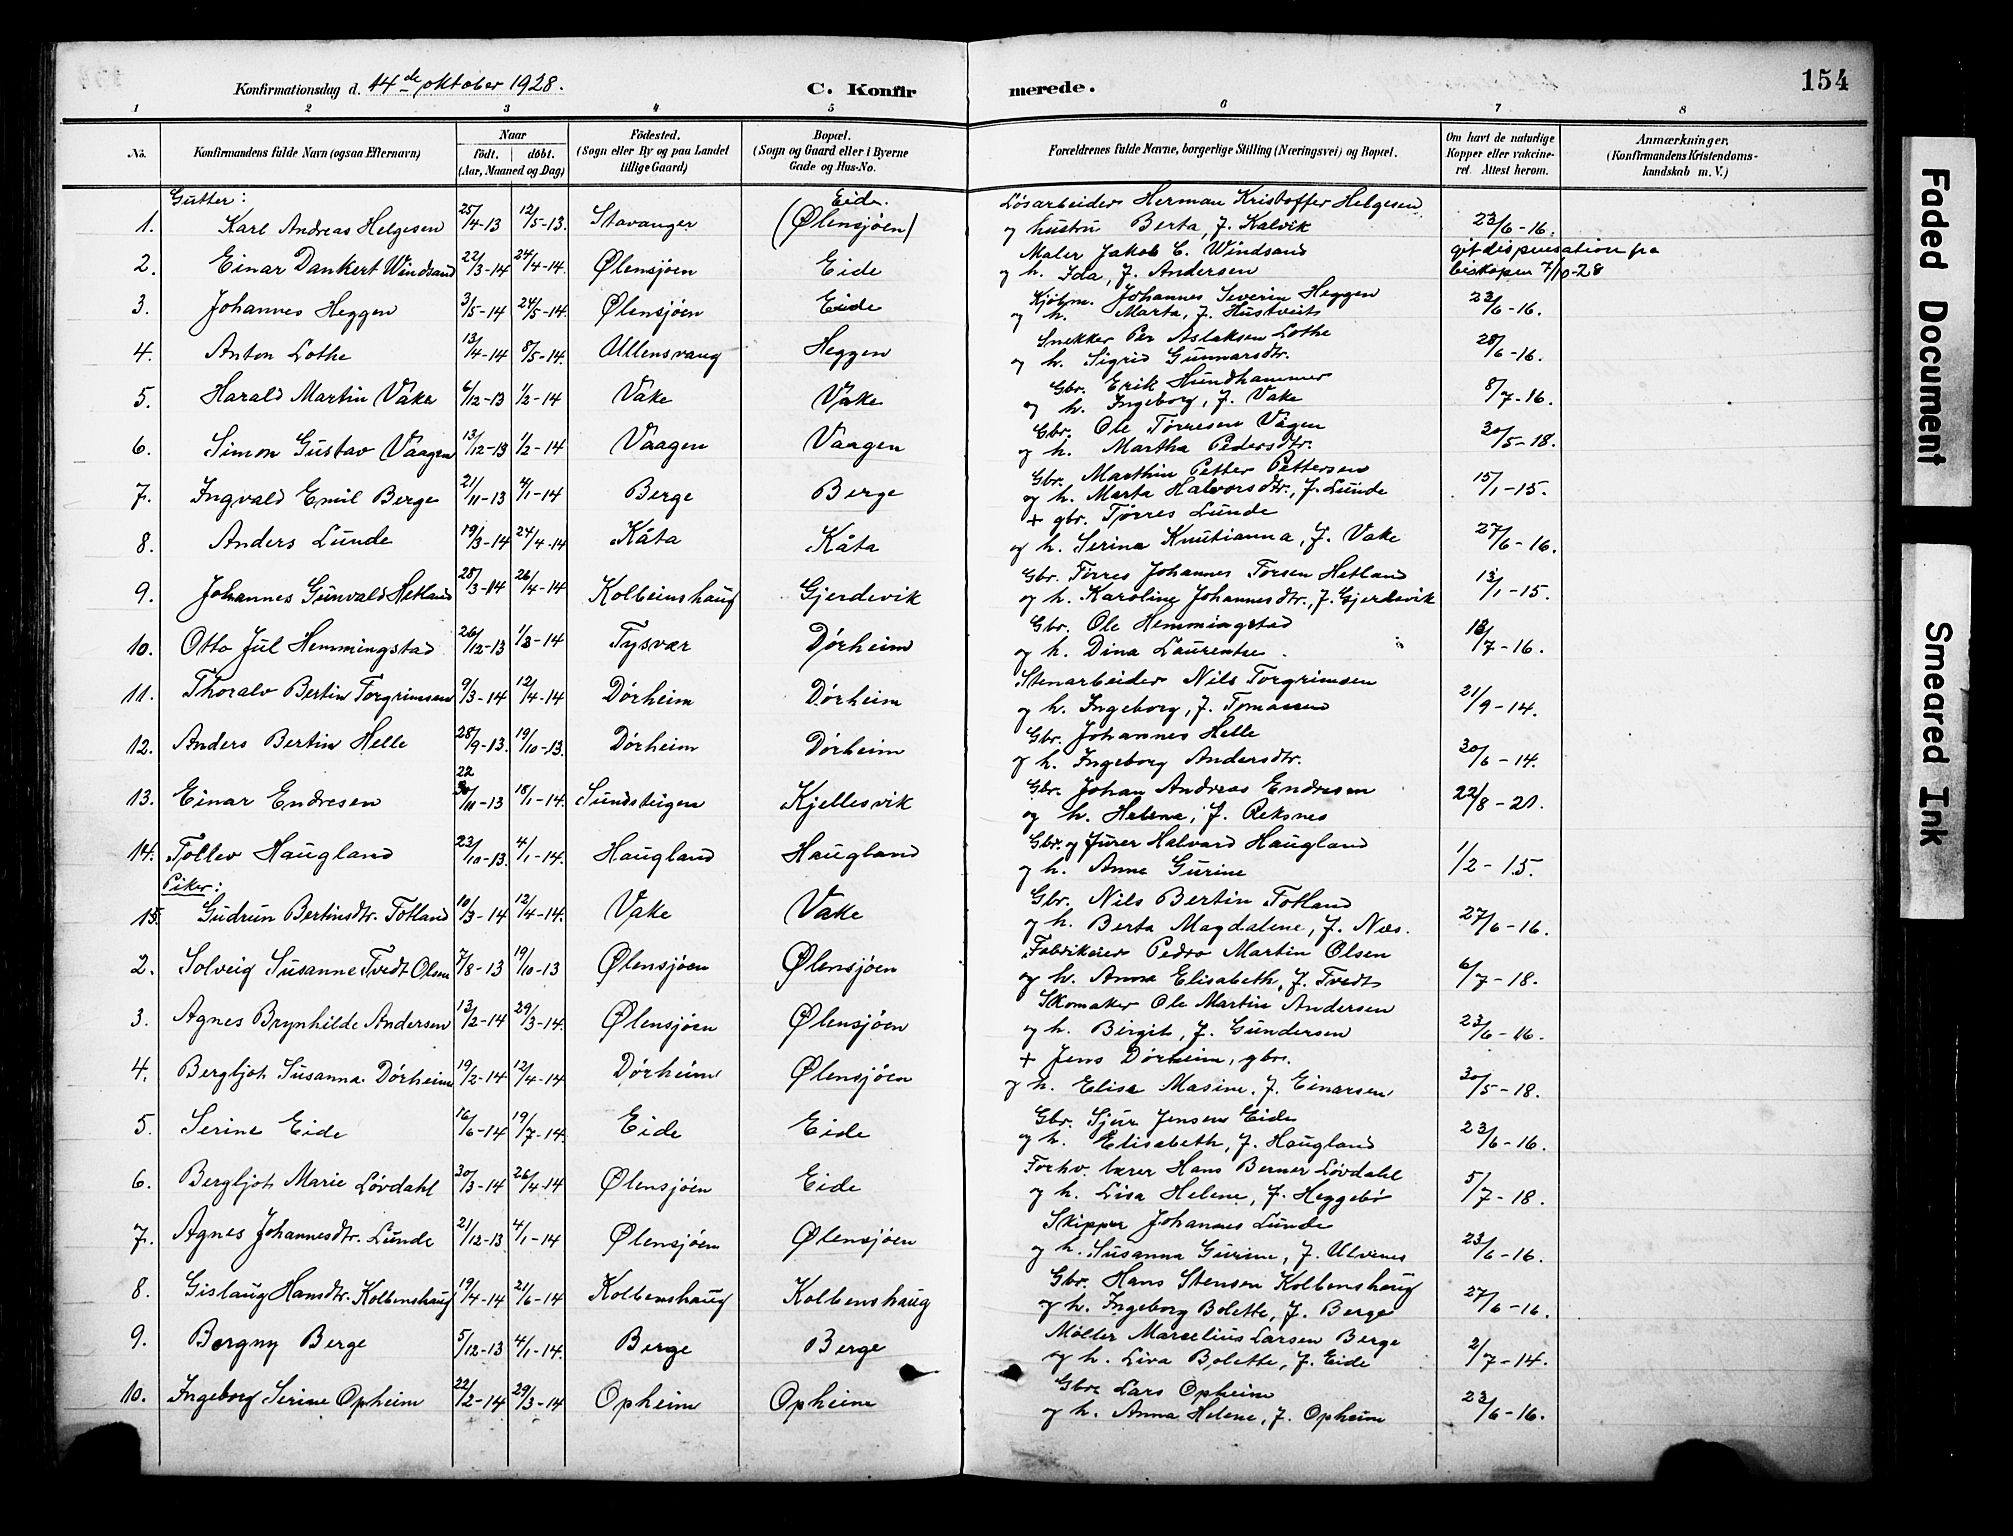 Konfirmationsdag d. 14de oktober 1928.
C. Konfirmerede.
154
1 2 3 4 5 6 7 8
No.
Konfirmandens fulde Navn (ogsaa Efternavn)
Naar
født. døbt.
(Aar, Maaned og Dag)
Fødested.
(Sogn eller By og paa Landet
tillige Gaard)
Bopæl.
(Sogn og Gaard eller i Byerne
Gade og Hus-No.
Forældrenes fulde Navne, borgerlige Stilling (Næringsvei) og Bopæl.
Om havt de naturlige
Kopper eller vakcine-
ret. Attest herom.
Anmærkninger.
(Konfirmandens Kristendoms-
kundskab m. V.)
Gutter:
1. Karl Andreas Helgesen 25/4-13 12/5-13. Stavanger Eide. (Ølensjøen) Løsarbeider Herman Kristoffer Helgesen
og hustru Berta, f. Kalvik 23/6-16.
2. Einar Dankert Windsand 22/3-14 24/4-14. Ølensjøen Eide Maler Jakob C. Windsand git dispensation fra
og h. Ida, f. Andersen biskopen 7/10-28
3. Johannes Heggen 3/5-14 24/5-14. Ølensjøen Eide Kjøbm. Johannes Severin Heggen
og h. Marta, f. Hustveit 23/6-16.
4. Anton Lothe 13/4-14 8/5-14. Ullensvang Heggen Snekker Per Aslaksen Lothe
og h. Sigrid Gunnarsdtr. 28/6-16.
5. Harald Martin Vake 6/12-13 1/2-14 Vake Vake Gbr. Erik Hundhammer
og h. Ingeborg, f. Vake 8/7-16.
6. Simon Gustav Vaagen 13/12-13 1/2-14 Vaagen Vaagen Gbr. Ole Tørresen Vågen
og h. Martha Pedersdtr. 30/5-18.
7. Ingvald Emil Berge 21/11-13 4/1-14 Berge Berge Gbr. Marthin Petter Pettersen
og h. Marta Halvorsdtr., f. Lunde 15/1-15.
8. Anders Lunde 19/3-14 24/4-14 Kåta Kåta + gbr. Tørres Lunde
og h. Serina Knutianna, f. Vake 27/6-16.
9. Johannes Gunvald Hetland 28/3-14 26/4-14 Kolbeinshaug Gjerdevik Gbr. Tørres Johannes Torsen Hetland
og h. Karoline Johannesdtr., f. Gjerdevik 13/1-15.
10. Otto Jul Hemmingstad 26/12-13 1/3-14 Tysvær Dørheim Gbr. Ole Hemmingstad
og h. Dina Laurentse. 13/7-16.
11. Thoralv Bertin Torgrimsen 9/3-14 12/4-14 Dørheim Dørheim Stenarbeider Nils Torgrimsen
og h. Ingeborg, f. Tomassen 21/9-14.
12. Anders Bertin Helle 28/9-13. 19/10-13. Dørheim Dørheim Gbr. Johannes Helle
og h. Ingeborg Andersdtr. 30/6-14.
13. Einar Endresen 22/11-13 18/1-14. Sundsteigen Kjellesvik Gbr. Johan Andreas Endresen
og h. Helene, f. Reksnes 22/8-21.
14. Tollev Haugland 23/10-13. 4/1-14. Haugland Haugland Gbr. og fører Halvard Haugland
og h. Anna Gurine 1/2-15.
Piker:
15. Gudrun Bertinsdtr. Totland 10/3-14 12/4-14. Vake Vake Gbr. Nils Bertin Totland
og h. Berta Magdalene, f. Næs. 27/6-16.
2. Solveig Susanne Tvedt Olsen 7/8-13 19/10-13 Ølensjøen Ølensjøen Fabrikeier Pedro Martin Olsen
og h. Anna Elisabeth, f. Tvedt 6/7-18.
3. Agnes Brynhilde Andersen 13/2-14 29/3-14. Ølensjøen Ølensjøen Skomaker Ole Martin Andersen
og h. Birgit, f. Gundersen 23/6-16.
4. Bergljot Susanna Dørheim 19/2-14 12/4-14 Dørheim Ølensjøen + Jens Dørheim, gbr.
og h. Elisa Masine, f. Einarsen 30/5-18.
5. Serine Eide 16/6-14 19/7-14. Eide Eide Gbr. Sjur Jensen Eide
og h. Elisabeth, f. Haugland 23/6-16.
6. Bergljot Marie Løvdahl 30/3-14 26/4-14 Ølensjøen Eide Forhv. lærer Hans Berner Løvdahl
og h. Lisa Helene, f. Heggebø 5/7-18.
7. Agnes Johannesdtr. Lunde 21/12-13 4/1-14 Ølensjøen Ølensjøen Skipper Johannes Lunde
og h. Susanna Gurine, f. Ulvenes 23/6-16.
8. Gislaug Hansdtr. Kolbenshaug 19/4-14 21/6-14 Kolbenshaug Kolbenshaug Gbr. Hans Stensen Kolbenshaug
og h. Ingeborg Bolette, f. Berge 27/6-16.
9. Borgny Berge 5/12-13 4/1-14. Berge Berge Møller Marselius Larsen Berge
og h. Liva Bolette, f. Eide 2/7-14.
10. Ingeborg Serine Opheim 22/2-14 29/3-14 Opheim Opheim Gbr. Lars Opheim
og h. Anna Helene, f. Opheim 23/6-16.
Faded Document
Smeared Ink